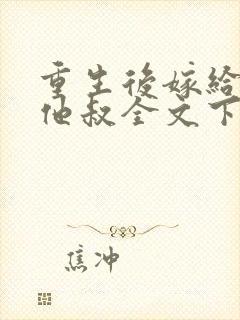 重生後嫁給
他叔全文下
焦冲